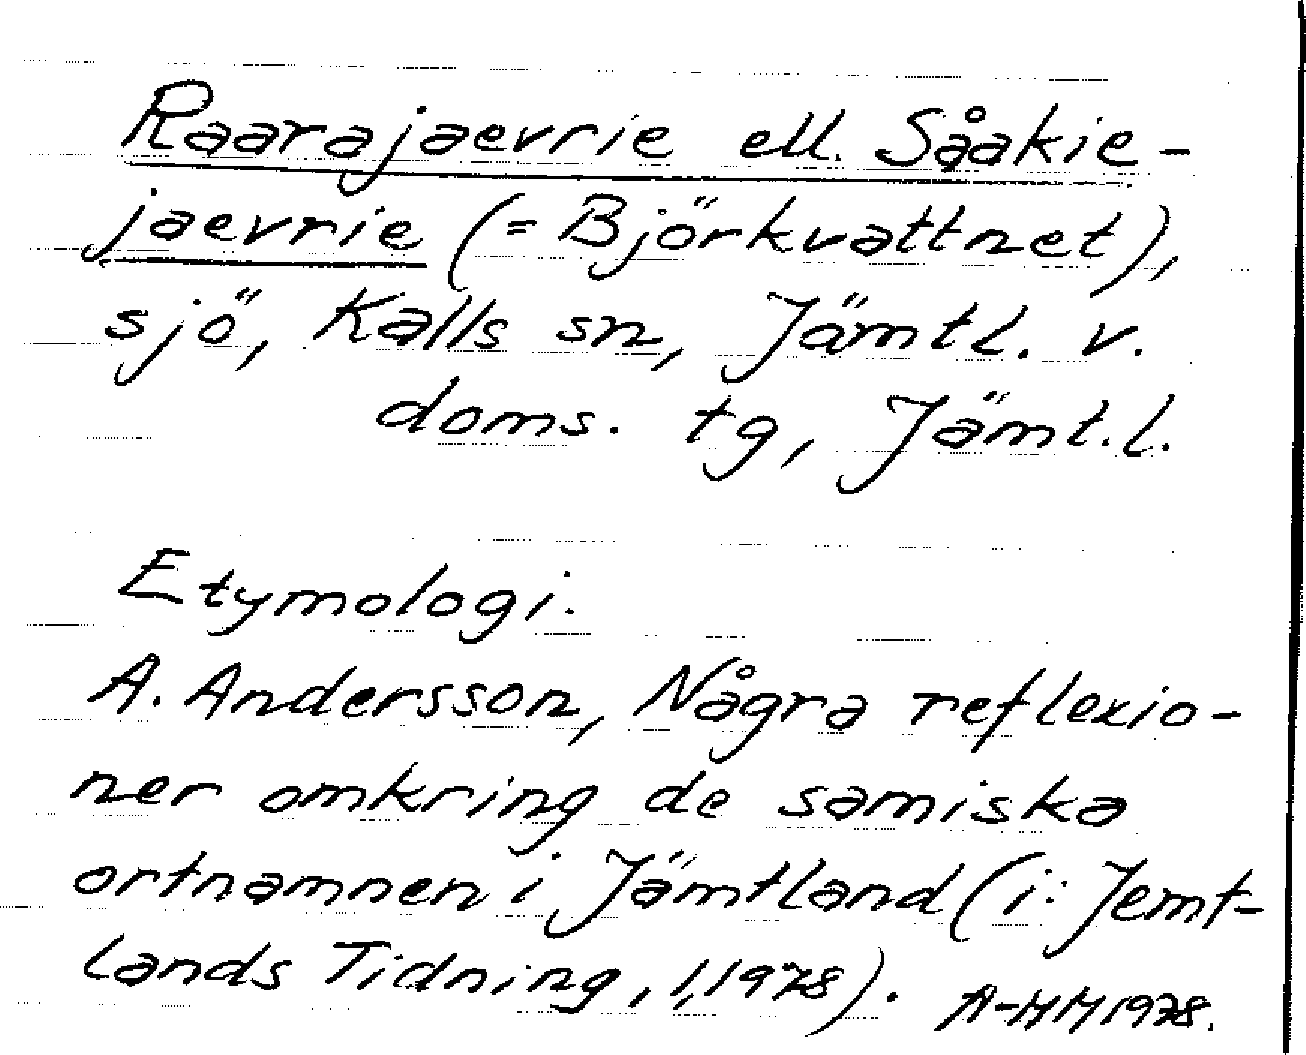 Raarajaevrie ell. Såakie-
jaevrie (= Björkvattnet),
sjö, Kalls sn, Jämtl. v.
doms. tg, Jämt.l.
Etymologi.
A. Andersson, Några reflexio-
ner omkring de samiska
ortnamnen i Jämtland (i: Jemt-
lands Tidning, 1,1978).  A-MM 1978.